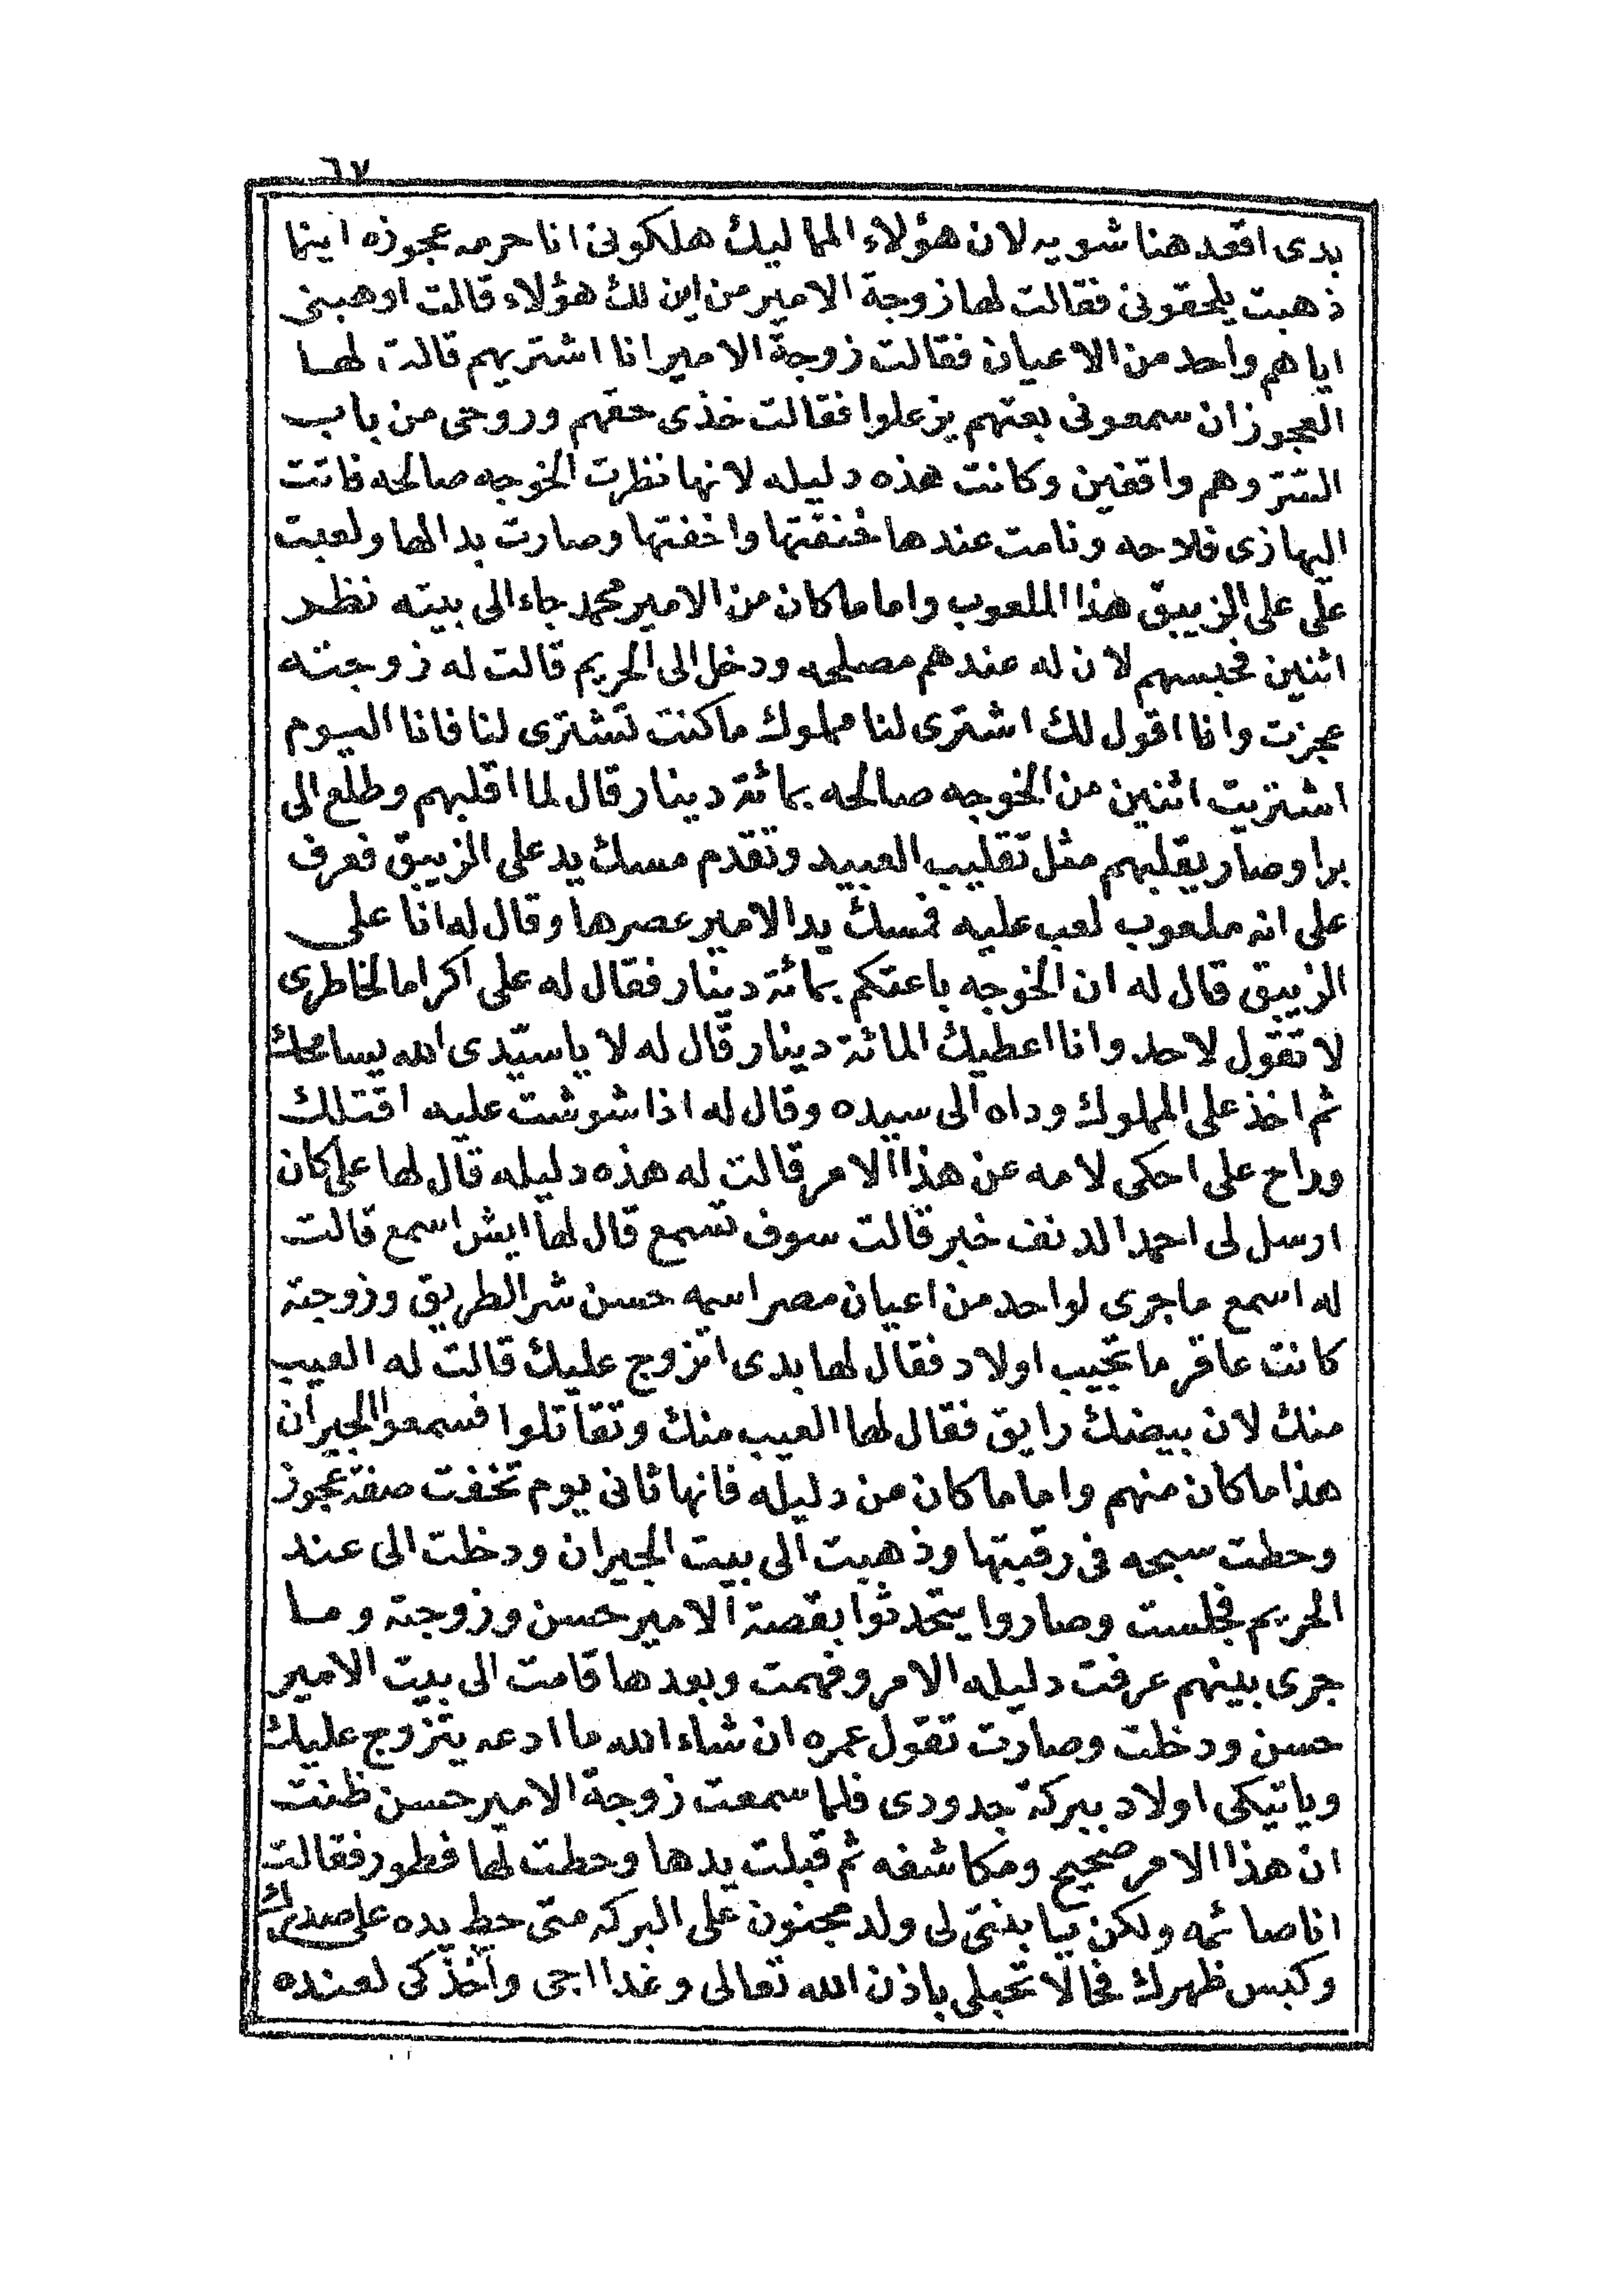 ٦٧
بدى اقعد هنا شويه لان هؤلاء المماليك هلكونى انا حرمه عجوزه اينما
ذهبت يلحقونى فقالت لها زوجة الامير من اين لك هؤلاء قالت اوهبنى
اياهم واحد من الاعيان فقالت زوجة الامير انا اشتريهم قالت لها
العجوز ان سمعونى بعتهم يزعلوا فقالت خذى حقهم وروحى من باب
الستر وهم واقفين وكانت هذه دليله لانها نظرت الخوجه صالحه فاتت
اليها زى فلاحه ونامت عندها خنقتها واخفتها وصارت بدالها ولعبت
على على الزيبق هذا الملعوب واما ما كان من الامير محمد جاء الى بيته نظر
اثنين فحبسهم لان له عندهم مصلحه ودخل الى الحريم قالت له زوجته
عجزت وانا اقول لك اشترى لنا مملوك ما كنت تشترى لنا فانا اليوم
اشتريت اثنين من الخوجه صالحه بمائة دينار قال لما اقلبهم وطلع الى
برا وصار يقلبهم مثل تقليب العبيد وتقدم مسك يد على الزيبق فعرف
على انه ملعوب لعب عليه فمسك يد الامير عصرها وقال له انا على
الزيبق قال له ان الخوجه باعتكم بمائة دينار فقال له على اكراما لخاطرى
لا تقول لاحد وانا اعطيك المائة دينار قال له لا ياسيدى الله يسامحك
ثم اخذ على المملوك وداه الى سيده وقال له اذا شوشت عليه اقتلك
وراح على احكى لامه عن هذا الامر قالت له هذه دليله قال لها على كان
ارسل لى احمد الدنف خبر قالت سوف تسمع قال لها ايش اسمع قالت
له اسمع ما جرى لواحد من اعيان مصر اسمه حسن شر الطريق وزوجته
كانت عاقر ما تجيب اولاد فقال لها بدى اتزوج عليك قالت له العيب
منك لان بيضك رايق فقال لها العيب منك وتقاتلوا فسمعوا الجيران
هذا ما كان منهم واما ما كان من دليله فانها ثانى يوم تخفت صفة عجوز
وحطت سبحه فى رقبتها وذهبت الى بيت الجيران ودخلت الى عند
الحريم فجلست وصاروا يتحدثوا بقصة الامير حسن وزوجته وما
جرى بينهم عرفت دليله الامر وفهمت وبعدها قامت الى بيت الامير
حسن ودخلت وصارت تقول عمره ان شاء الله ما ادعه يتزوج عليك
وياتيكى اولاد ببركة جدودى فلما سمعت زوجة الامير حسن ظنت
ان هذا الامر صحيح ومكاشفه ثم قبلت يدها وحطت لها فطور فقالت
انا صائمه ولكن يا بنتى لى ولد مجنون على البركه متى حط يده على صدرك
وكبس ظهرك فحالا تحبلى باذن الله تعالى وغدا اجى واخذكى لعنده